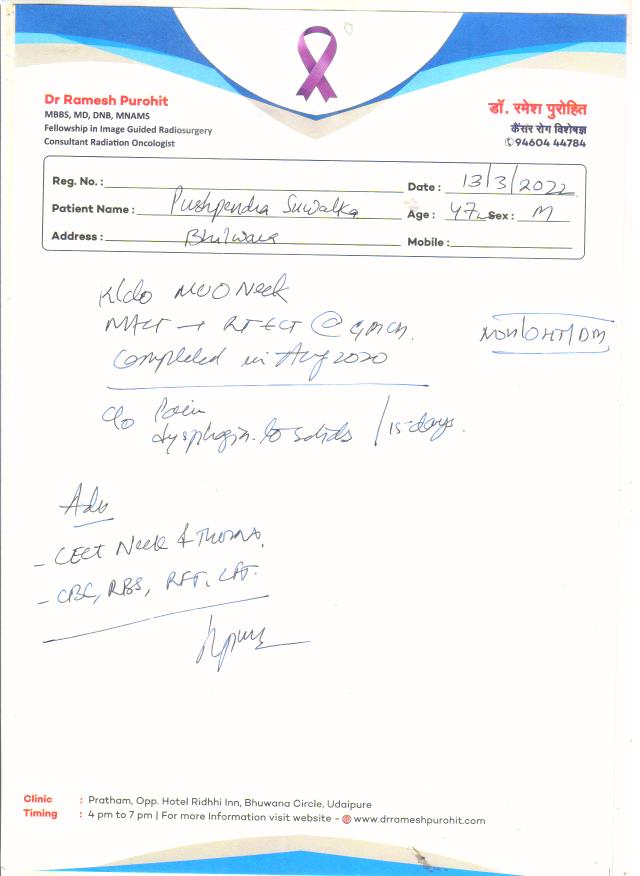 Dr Ramesh Purohit
MBBS, MD, DNB, MNAMS
Fellowship in Image Guided Radiosurgery
Consultant Radiation Oncologist
डॉ. रमेश पुरोहित
कैंसर रोग विशेषज्ञ
94604 44784
Reg. No. :
Date : 13/3/2022
Patient Name : Pushpendra Suwalka
Age : 47 Sex : M
Address : Bhilwara
Mobile :
K/c/o MUO Neck
→ RT+CT @ GMCH.
Completed in Aug 2020
C/o Pain
dysphagia to solids / 15 days.
Adv
- CECT Neck & Thorax.
- CBC, RBS, RFT, LFT.
Clinic : Pratham, Opp. Hotel Ridhhi Inn, Bhuwana Circle, Udaipure
Timing : 4 pm to 7 pm | For more Information visit website - www.drrameshpurohit.com